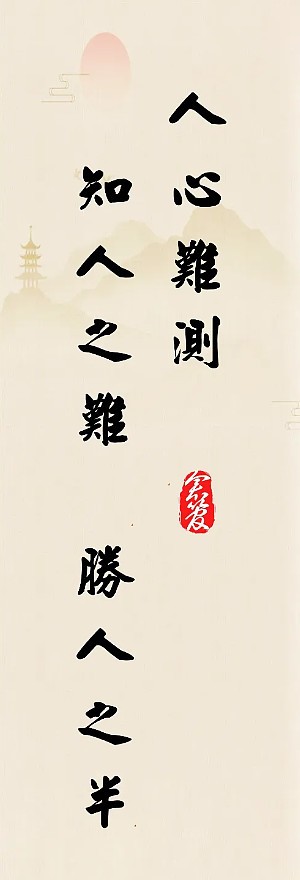 人心難測
知人之難 勝人之半